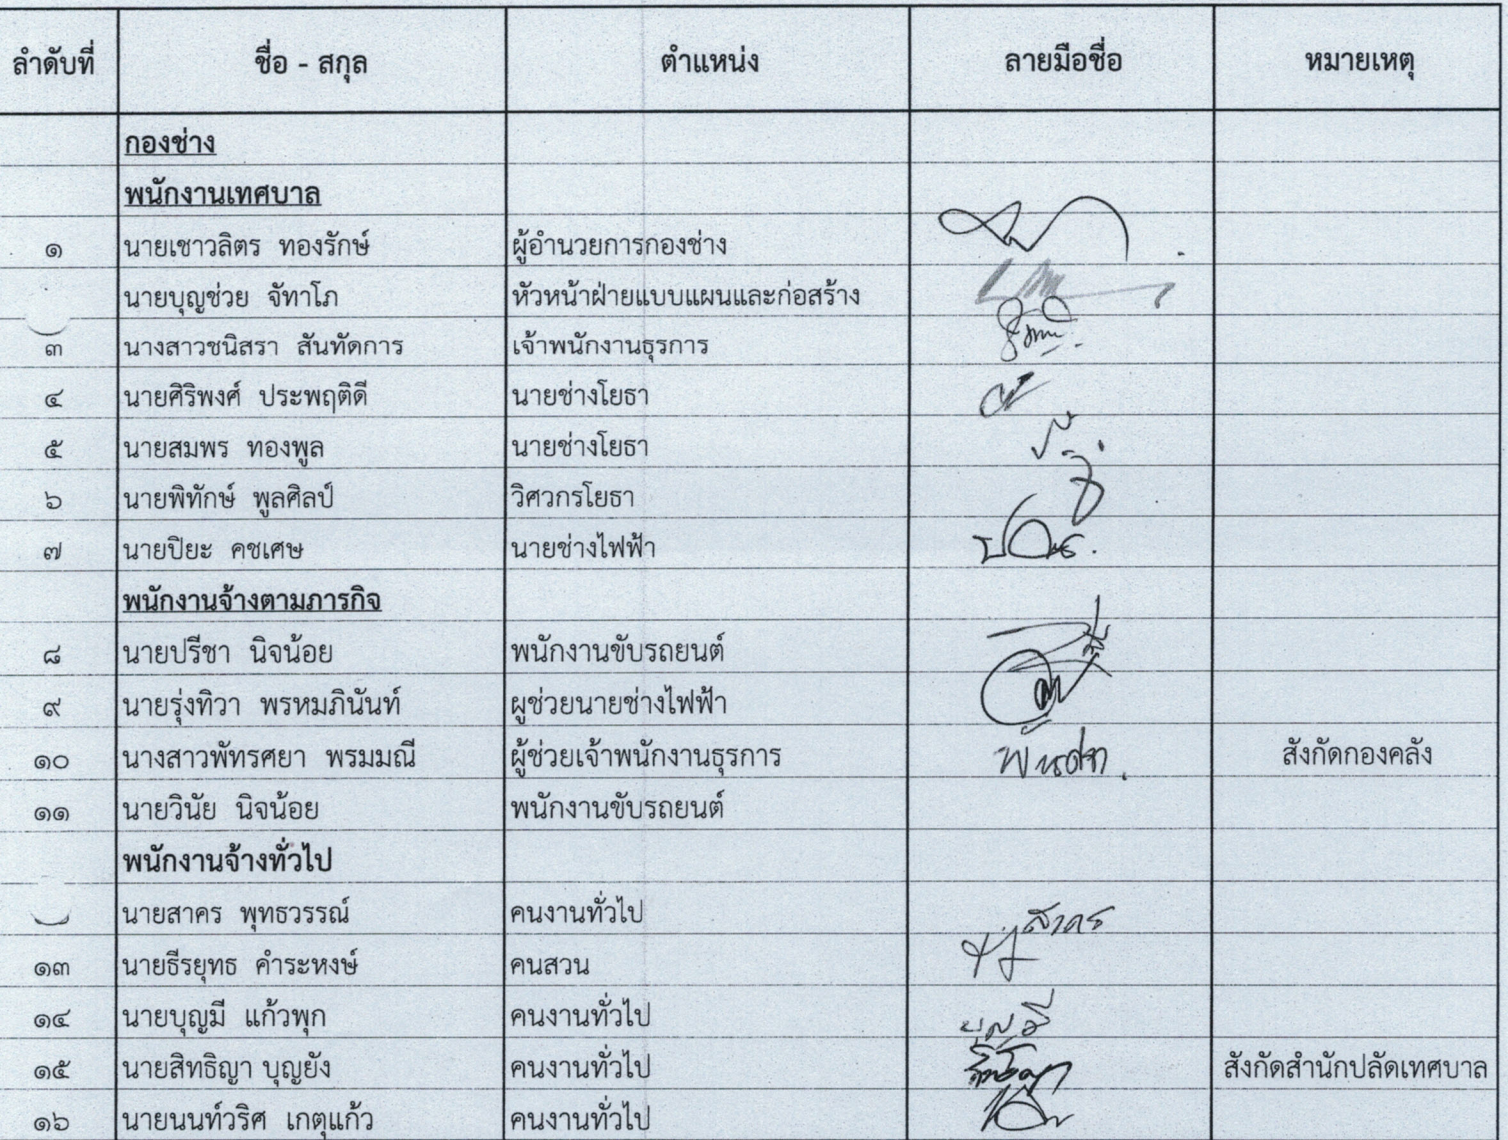 ลำดับที่ ชื่อ - สกุล ตำแหน่ง ลายมือชื่อ หมายเหตุ
กองช่าง
พนักงานเทศบาล
๑ นายเชาวลิตร ทองรักษ์ ผู้อำนวยการกองช่าง
นายบุญช่วย จัทาโภ หัวหน้าฝ่ายแบบแผนและก่อสร้าง
๓ นางสาวชนิสรา สันทัดการ เจ้าพนักงานธุรการ
๔ นายศิริพงศ์ ประพฤติดี นายช่างโยธา
๕ นายสมพร ทองพูล นายช่างโยธา
๖ นายพิทักษ์ พูลศิลป์ วิศวกรโยธา
๗ นายปิยะ คชเศษ นายช่างไฟฟ้า
พนักงานจ้างตามภารกิจ
๘ นายปรีชา นิจน้อย พนักงานขับรถยนต์
๙ นายรุ่งทิวา พรหมภินันท์ ผูช่วยนายช่างไฟฟ้า
๑๐ นางสาวพัทรศยา พรมมณี ผู้ช่วยเจ้าพนักงานธุรการ สังกัดกองคลัง
๑๑ นายวินัย นิจน้อย พนักงานขับรถยนต์
พนักงานจ้างทั่วไป
นายสาคร พุทธวรรณ์ คนงานทั่วไป สาคร
๑๓ นายธีรยุทธ คำระหงษ์ คนสวน
๑๔ นายบุญมี แก้วพุก คนงานทั่วไป บุญมี
๑๕ นายสิทธิญา บุญยัง คนงานทั่วไป สังกัดสำนักปลัดเทศบาล
๑๖ นายนนท์วริศ เกตุแก้ว คนงานทั่วไป